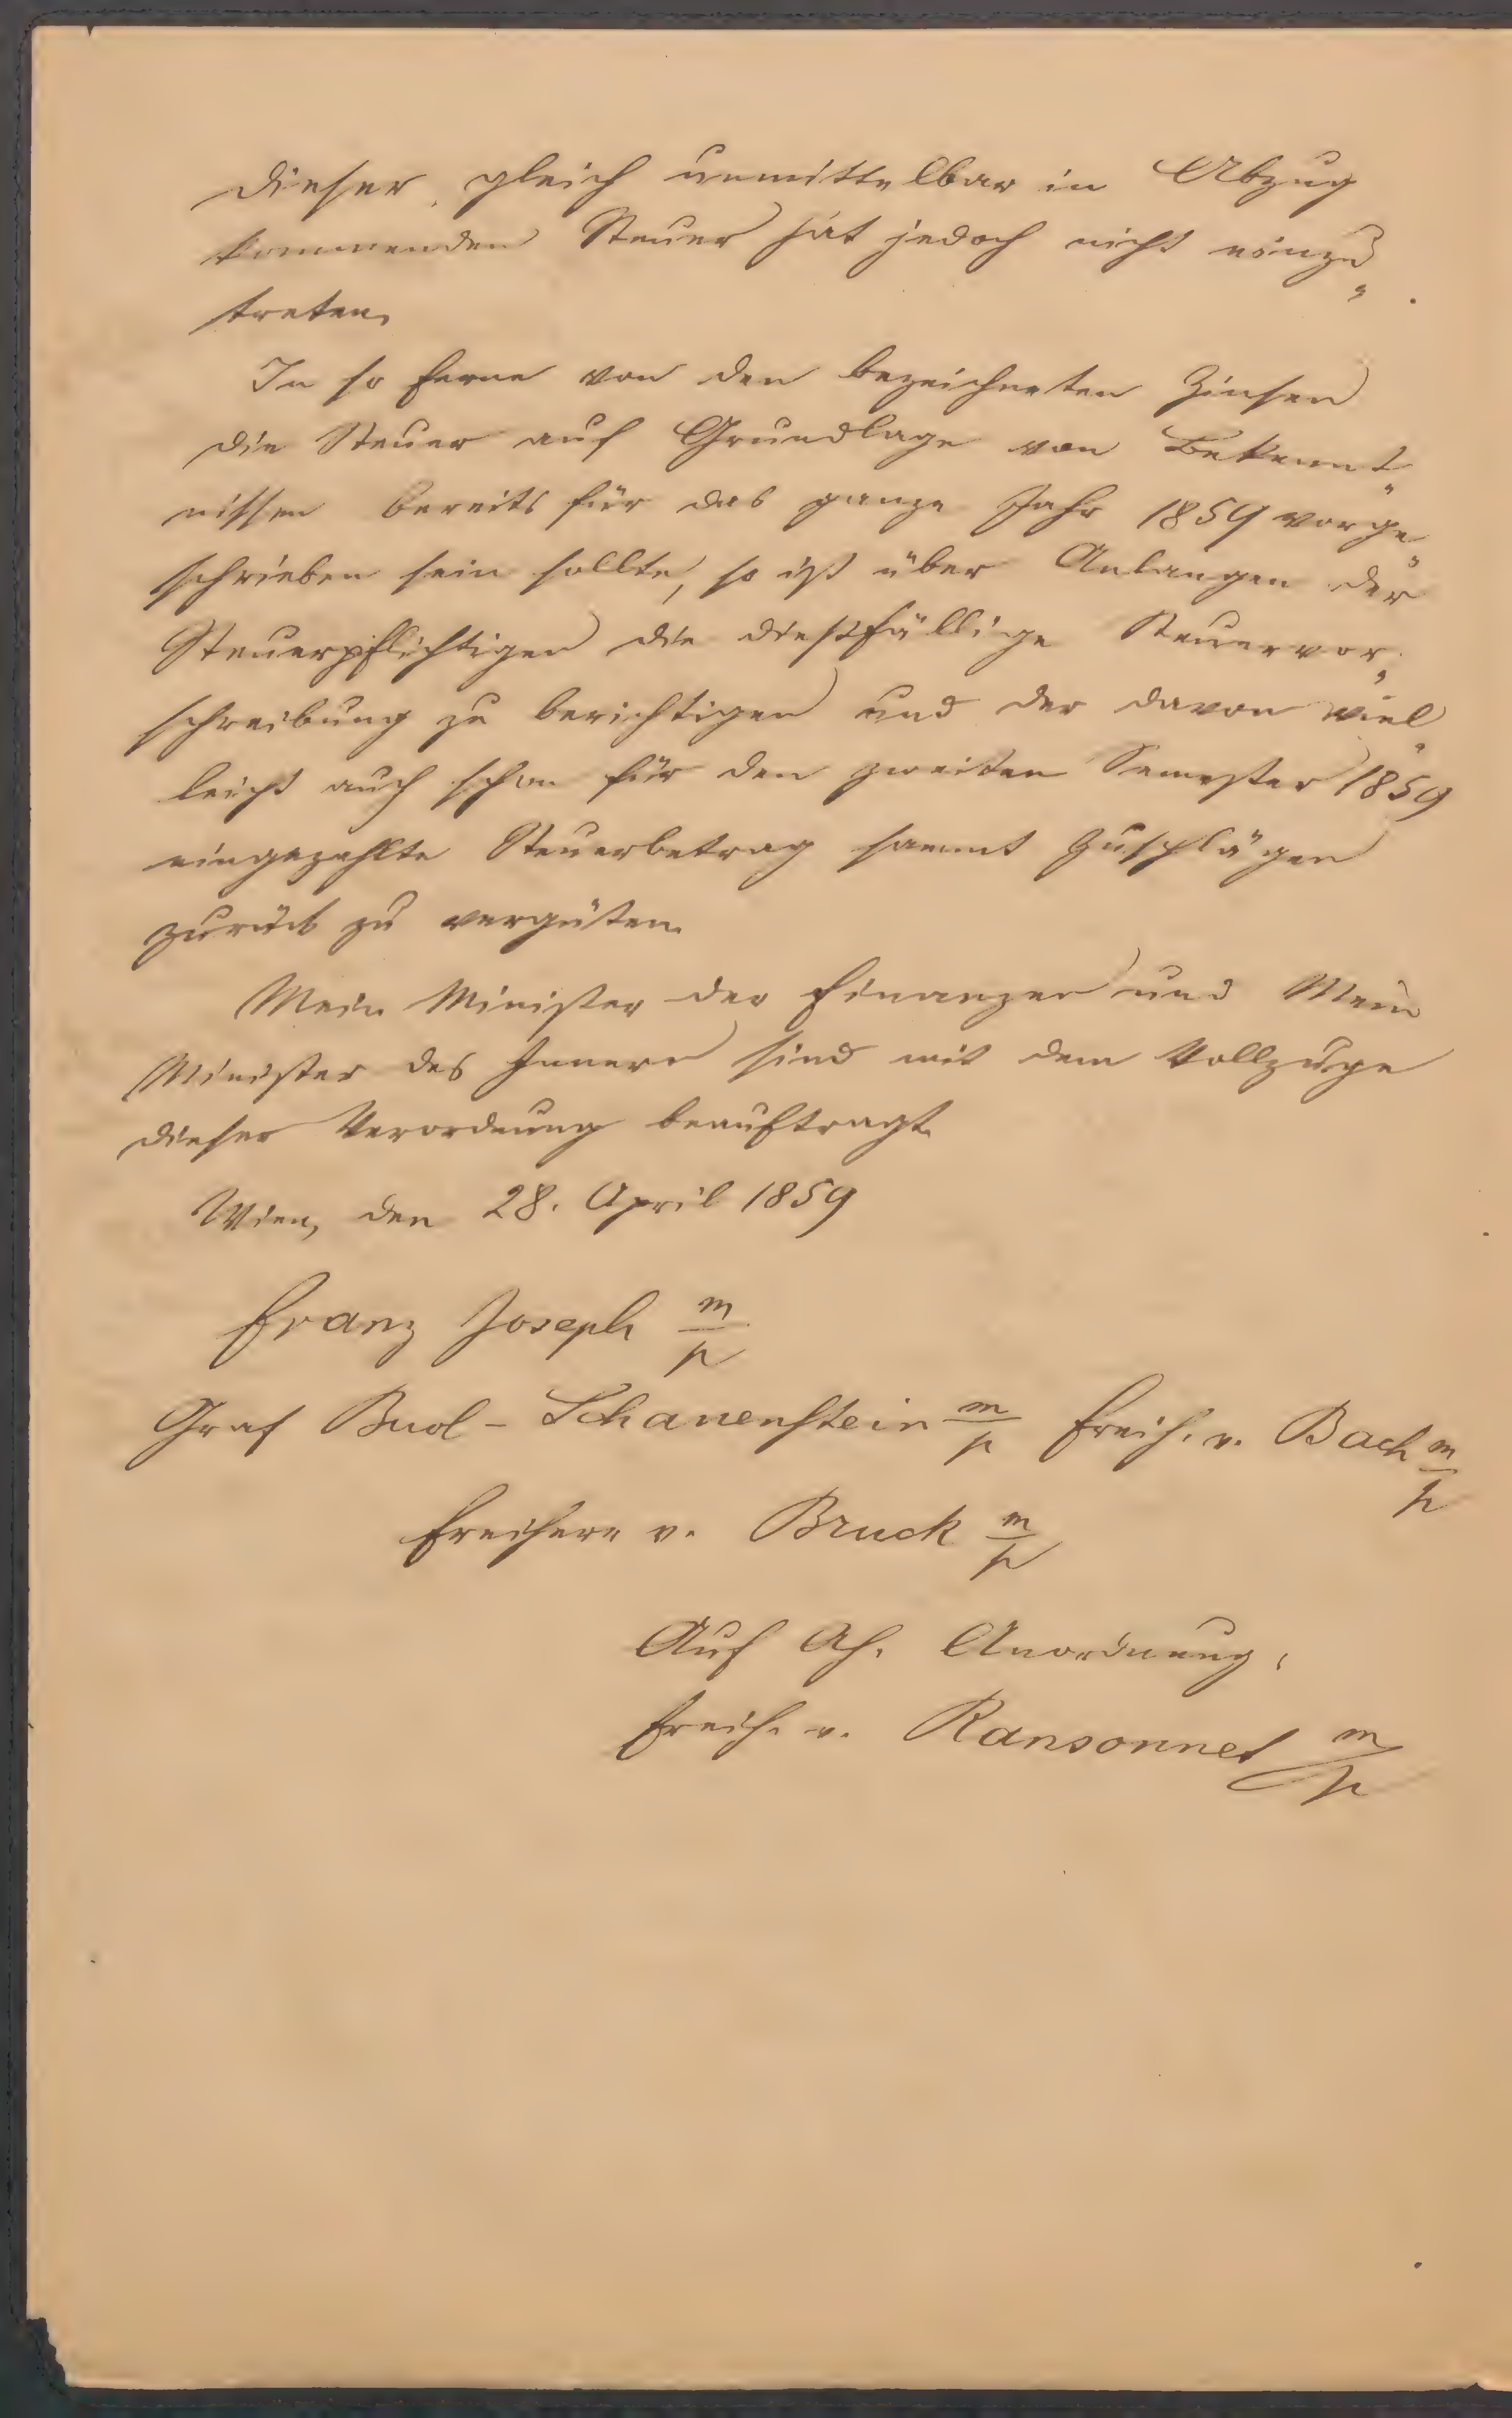 dieser, gleich unmittelbar in Abzug
kommenden Steuer hat jedoch nicht einzu„
treten.
In so ferne von den bezeichneten Zinsen
die Steuer auf Grundlage von Bekennt„
nissen bereits für das ganze Jahr 1859 vorge„
schrieben sein sollte, so ist über Anlangen der
Steuerpflichtigen die dießfällige Steuervor„
schreibung zu berichtigen und der davon viel„
leicht auch schon für den zweiten Semester 1859
eingezahlte Steuerbetrag sammt Zuschlägen
zurück zu vergüten.
Mein Minister der Finanzen und Mein
Minister des Innern sind mit dem Vollzuge
dieser Verordnung beauftragt.
Wien, den 28. April 1859
Franz Joseph m/p
Graf Buol-Schauenstein m/p Freih. v. Bach m/p
Freiherr v. Bruck m/p
Auf Ah. Anordnung:
Freih. v. Ransonnet m/p